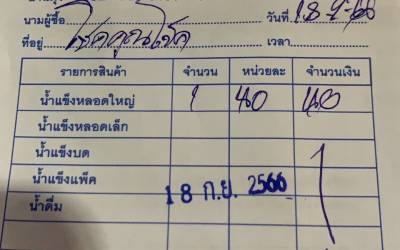 นามผู้ซื้อ วันที่ 18 9-66
ที่อยู่ โชคคูณโชค เวลา
รายการสินค้า จำนวน หน่วยละ จำนวนเงิน
น้ำแข็งหลอดใหญ่ 1 40 40
น้ำแข็งหลอดเล็ก
น้ำแข็งบด
น้ำแข็งแพ็ค 18 ก.ย. 2566
น้ำดื่ม